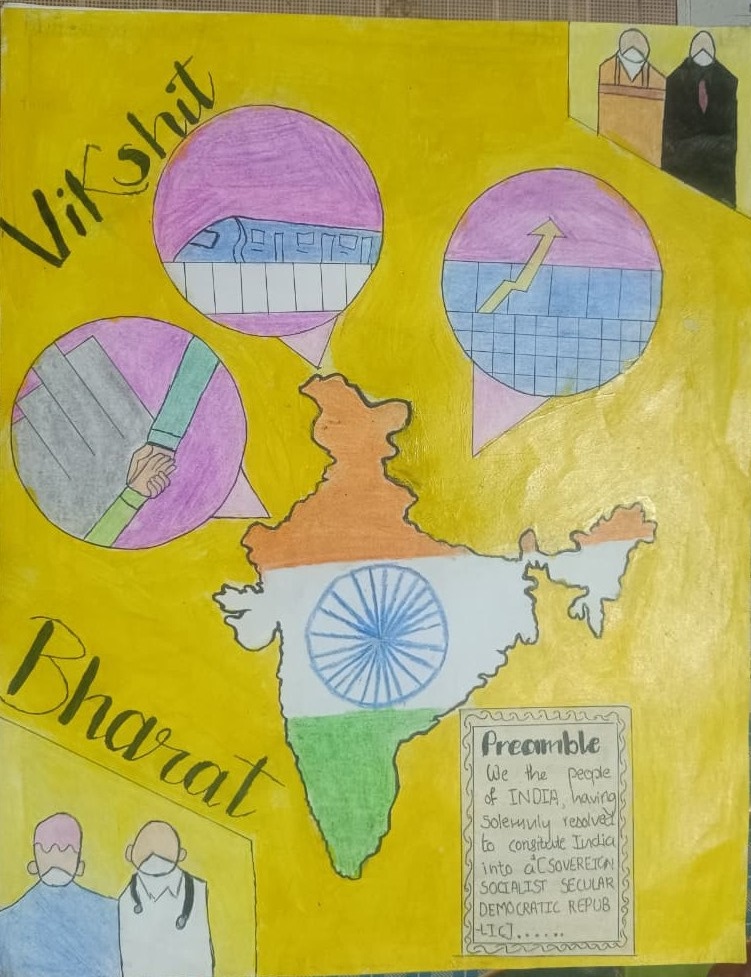 Vikshit
Bharat
Preamble
We the people
of INDIA, having
solemnly resolved
to consitute India
into a [SOVEREIGN
SOCIALIST SECULAR
DEMOCRATIC REPUB
-LIC]......